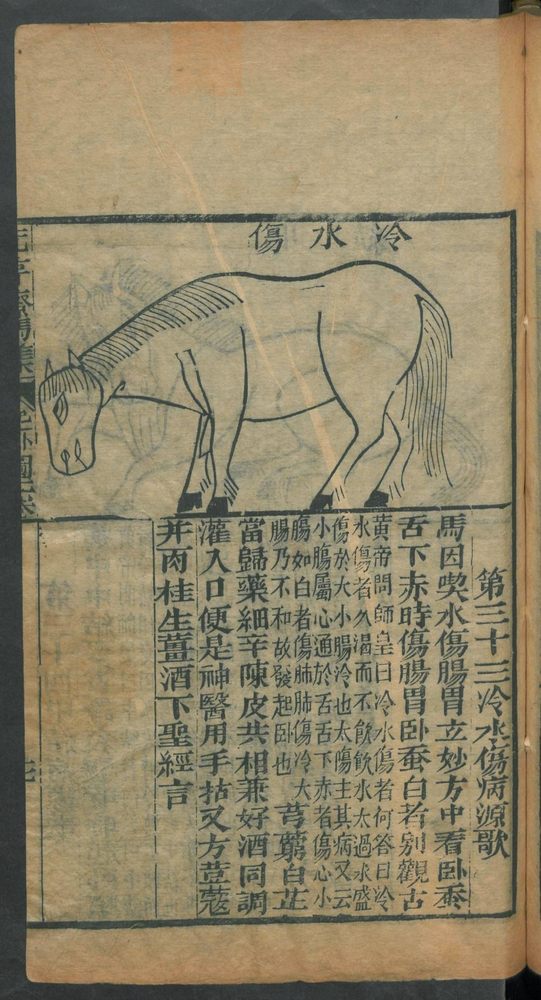 冷水傷
第三十三冷水傷病源歌
馬因喫水傷腸胃立妙方中看卧蚕
舌下赤時傷腸胃卧蚕白者别觀占
黄帝問師皇曰冷水傷者何答曰冷
水傷者久渴而不飲飲水太過水盛
傷於大小腸冷也太傷主其病又云
小腸屬心通於舌舌下赤者傷心小
腸如白者傷肺肺傷冷大
腸乃不和故發起卧也
芎藭白芷
當歸藥細辛陳皮共相兼好酒同調
灌入口便是神醫用手拈又方荳蔲
并肉桂生薑酒下聖經言
元亨療馬集